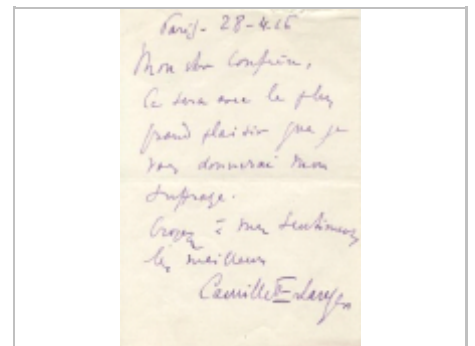 Paris - 28-4.26
Mon cher Confrère,
Ce sera avec le plus
grand plaisir que je
vous donnerai mon
suffrage.
Croyez à mes sentiments
les meilleurs
Camille Erlanger